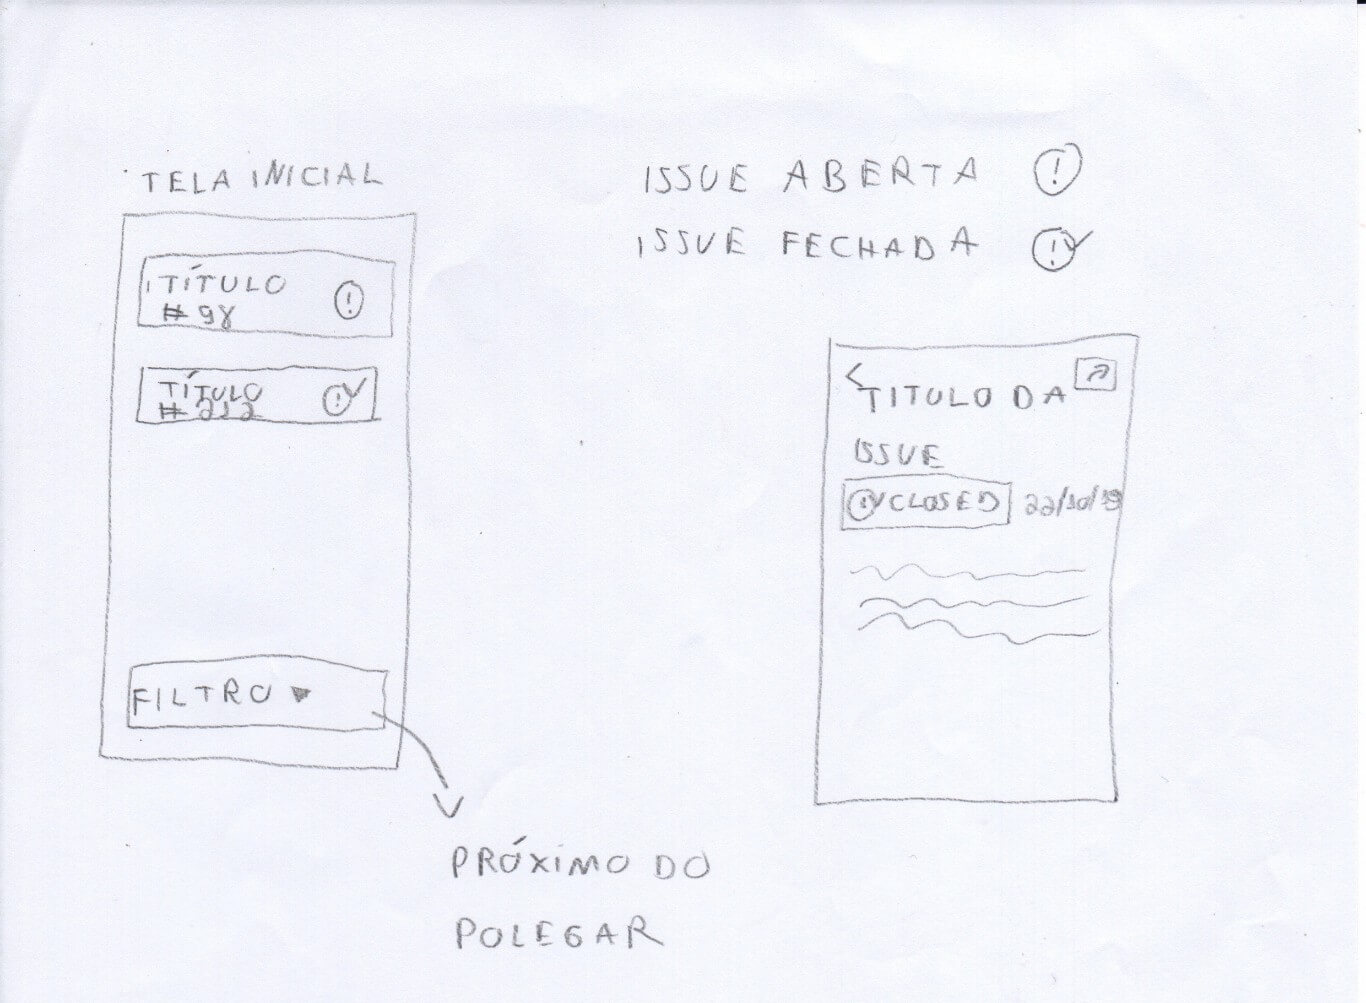 TELA INICIAL
TÍTULO
# 98
TÍTULO
# 212
FILTRO
PRÓXIMO DO
POLEGAR
ISSUE ABERTA !
ISSUE FECHADA !
< TITULO DA
ISSUE
! CLOSED 22/10/19